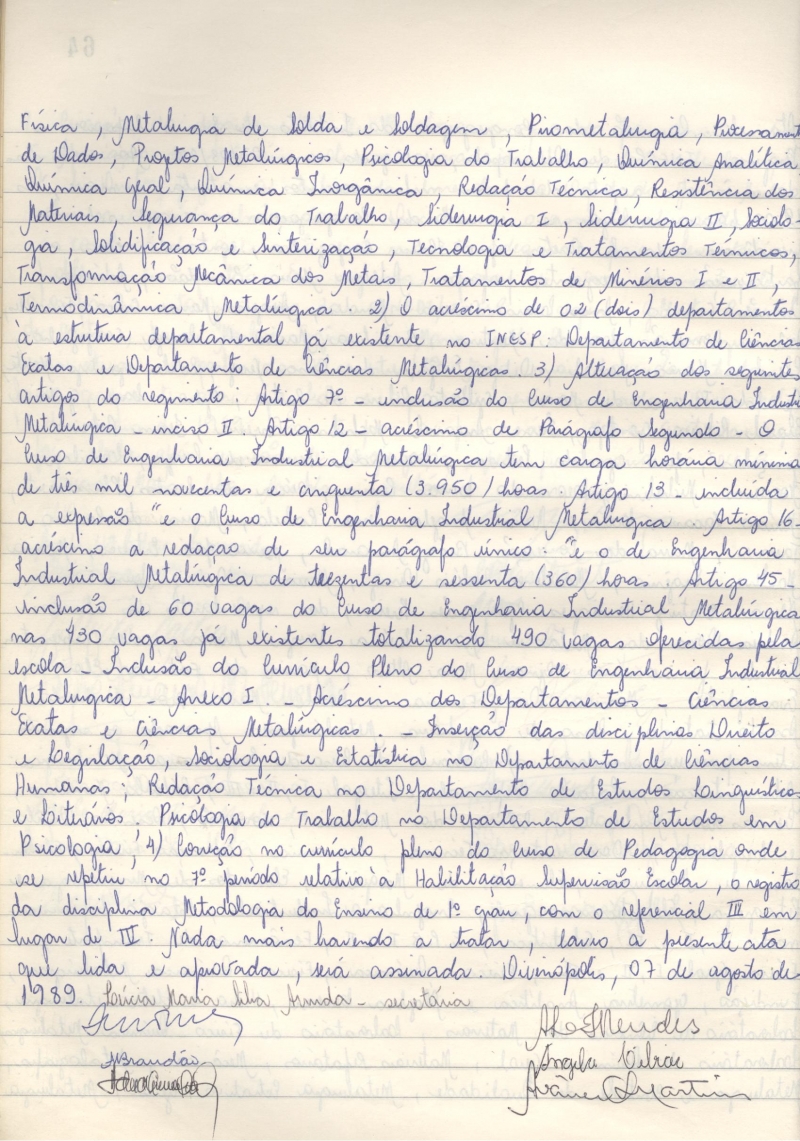 Física, Metalurgia de Solda e Soldagem, Pirometalurgia, Processament
de Dados, Projetos Metalúrgicos, Psicologia do Trabalho, Química Analítica
Química Geral, Química Inorgânica, Redação Técnica, Resistência dos
Materiais, Segurança do Trabalho, Siderurgia I, Siderurgia II, Sociolo-
gia, Solidificação e Sinterização, Tecnologia e Tratamentos Térmicos,
Transformação Mecânica dos Metais, Tratamentos de Minérios I e II,
Termodinâmica Metalúrgica. 2) O acréscimo de 02 (dois) departamentos
à estrutura departamental já existente no INESP: Departamento de Ciências
Exatas e Departamento de Ciências Metalúrgicas. 3) Alteração dos seguintes
artigos do regimento: Artigo 7º - inclusão do Curso de Engenharia Industri
Metalúrgica - inciso II. Artigo 12 - acréscimo de Parágrafo Segundo - O
Curso de Engenharia Industrial Metalúrgica tem carga horária mínima
de três mil novecentas e cinquenta (3.950) horas. Artigo 13 - incluída
a expressão "e o Curso de Engenharia Industrial Metalúrgica. Artigo 16-
acréscimo a redação de seu parágrafo único: "e o de Engenharia
Industrial Metalúrgica de trezentas e sessenta (360) horas. Artigo 45-
inclusão de 60 vagas do Curso de Engenharia Industrial Metalúrgica
nas 430 vagas já existentes totalizando 490 vagas oferecidas pela
escola - Inclusão do Currículo Pleno do Curso de Engenharia Industrial
Metalurgica - Anexo I. - Acréscimo dos Departamentos - Ciências
Exatas e Ciências Metalúrgicas. - Inserção das disciplinas Direito
e Legislação, Sociologia e Estatística no Departamento de Ciências
Humanas; Redação Técnica no Departamento de Estudos Linguísticos
e Literários. Psicologia do Trabalho no Departamento de Estudos em
Psicologia; 4) Correção no currículo pleno do Curso de Pedagogia onde
se repetiu no 7º período relativo à Habilitação Supervisão Escolar, o registro
da disciplina Metodologia do Ensino de 1º grau, com o referencial III em
lugar de IV. Nada mais havendo a tratar, lavro a presente ata
que lida e aprovada, será assinada. Divinópolis, 07 de agosto de
1989. Maria Silva Arruda - secretária
Mendes
JBrandão
Ângela
Martins